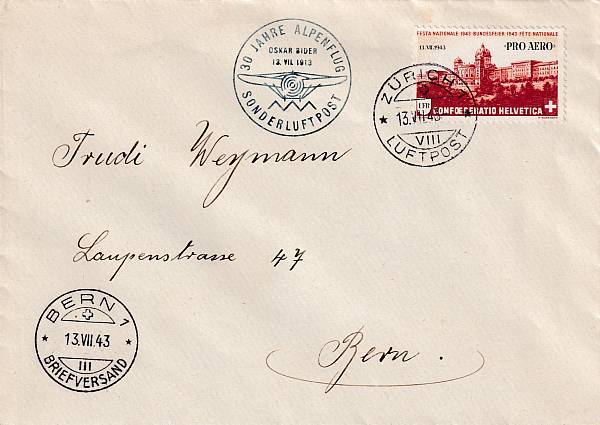 30 JAHRE ALPENFLUG
OSKAR BIDER
13. VII. 1913
SONDERLUFTPOST
FESTA NAZIONALE 1943 BUNDESFEIER 1943 FÊTE NATIONALE
13.VII.1943 PRO AERO
1 FR
CONFOEDERATIO HELVETICA
ZÜRICH 1
13.VII.43
VIII
LUFTPOST
Trudi Weymann
Laupenstrasse 47
Bern.
BERN 1
13.VII.43
III
BRIEFVERSAND